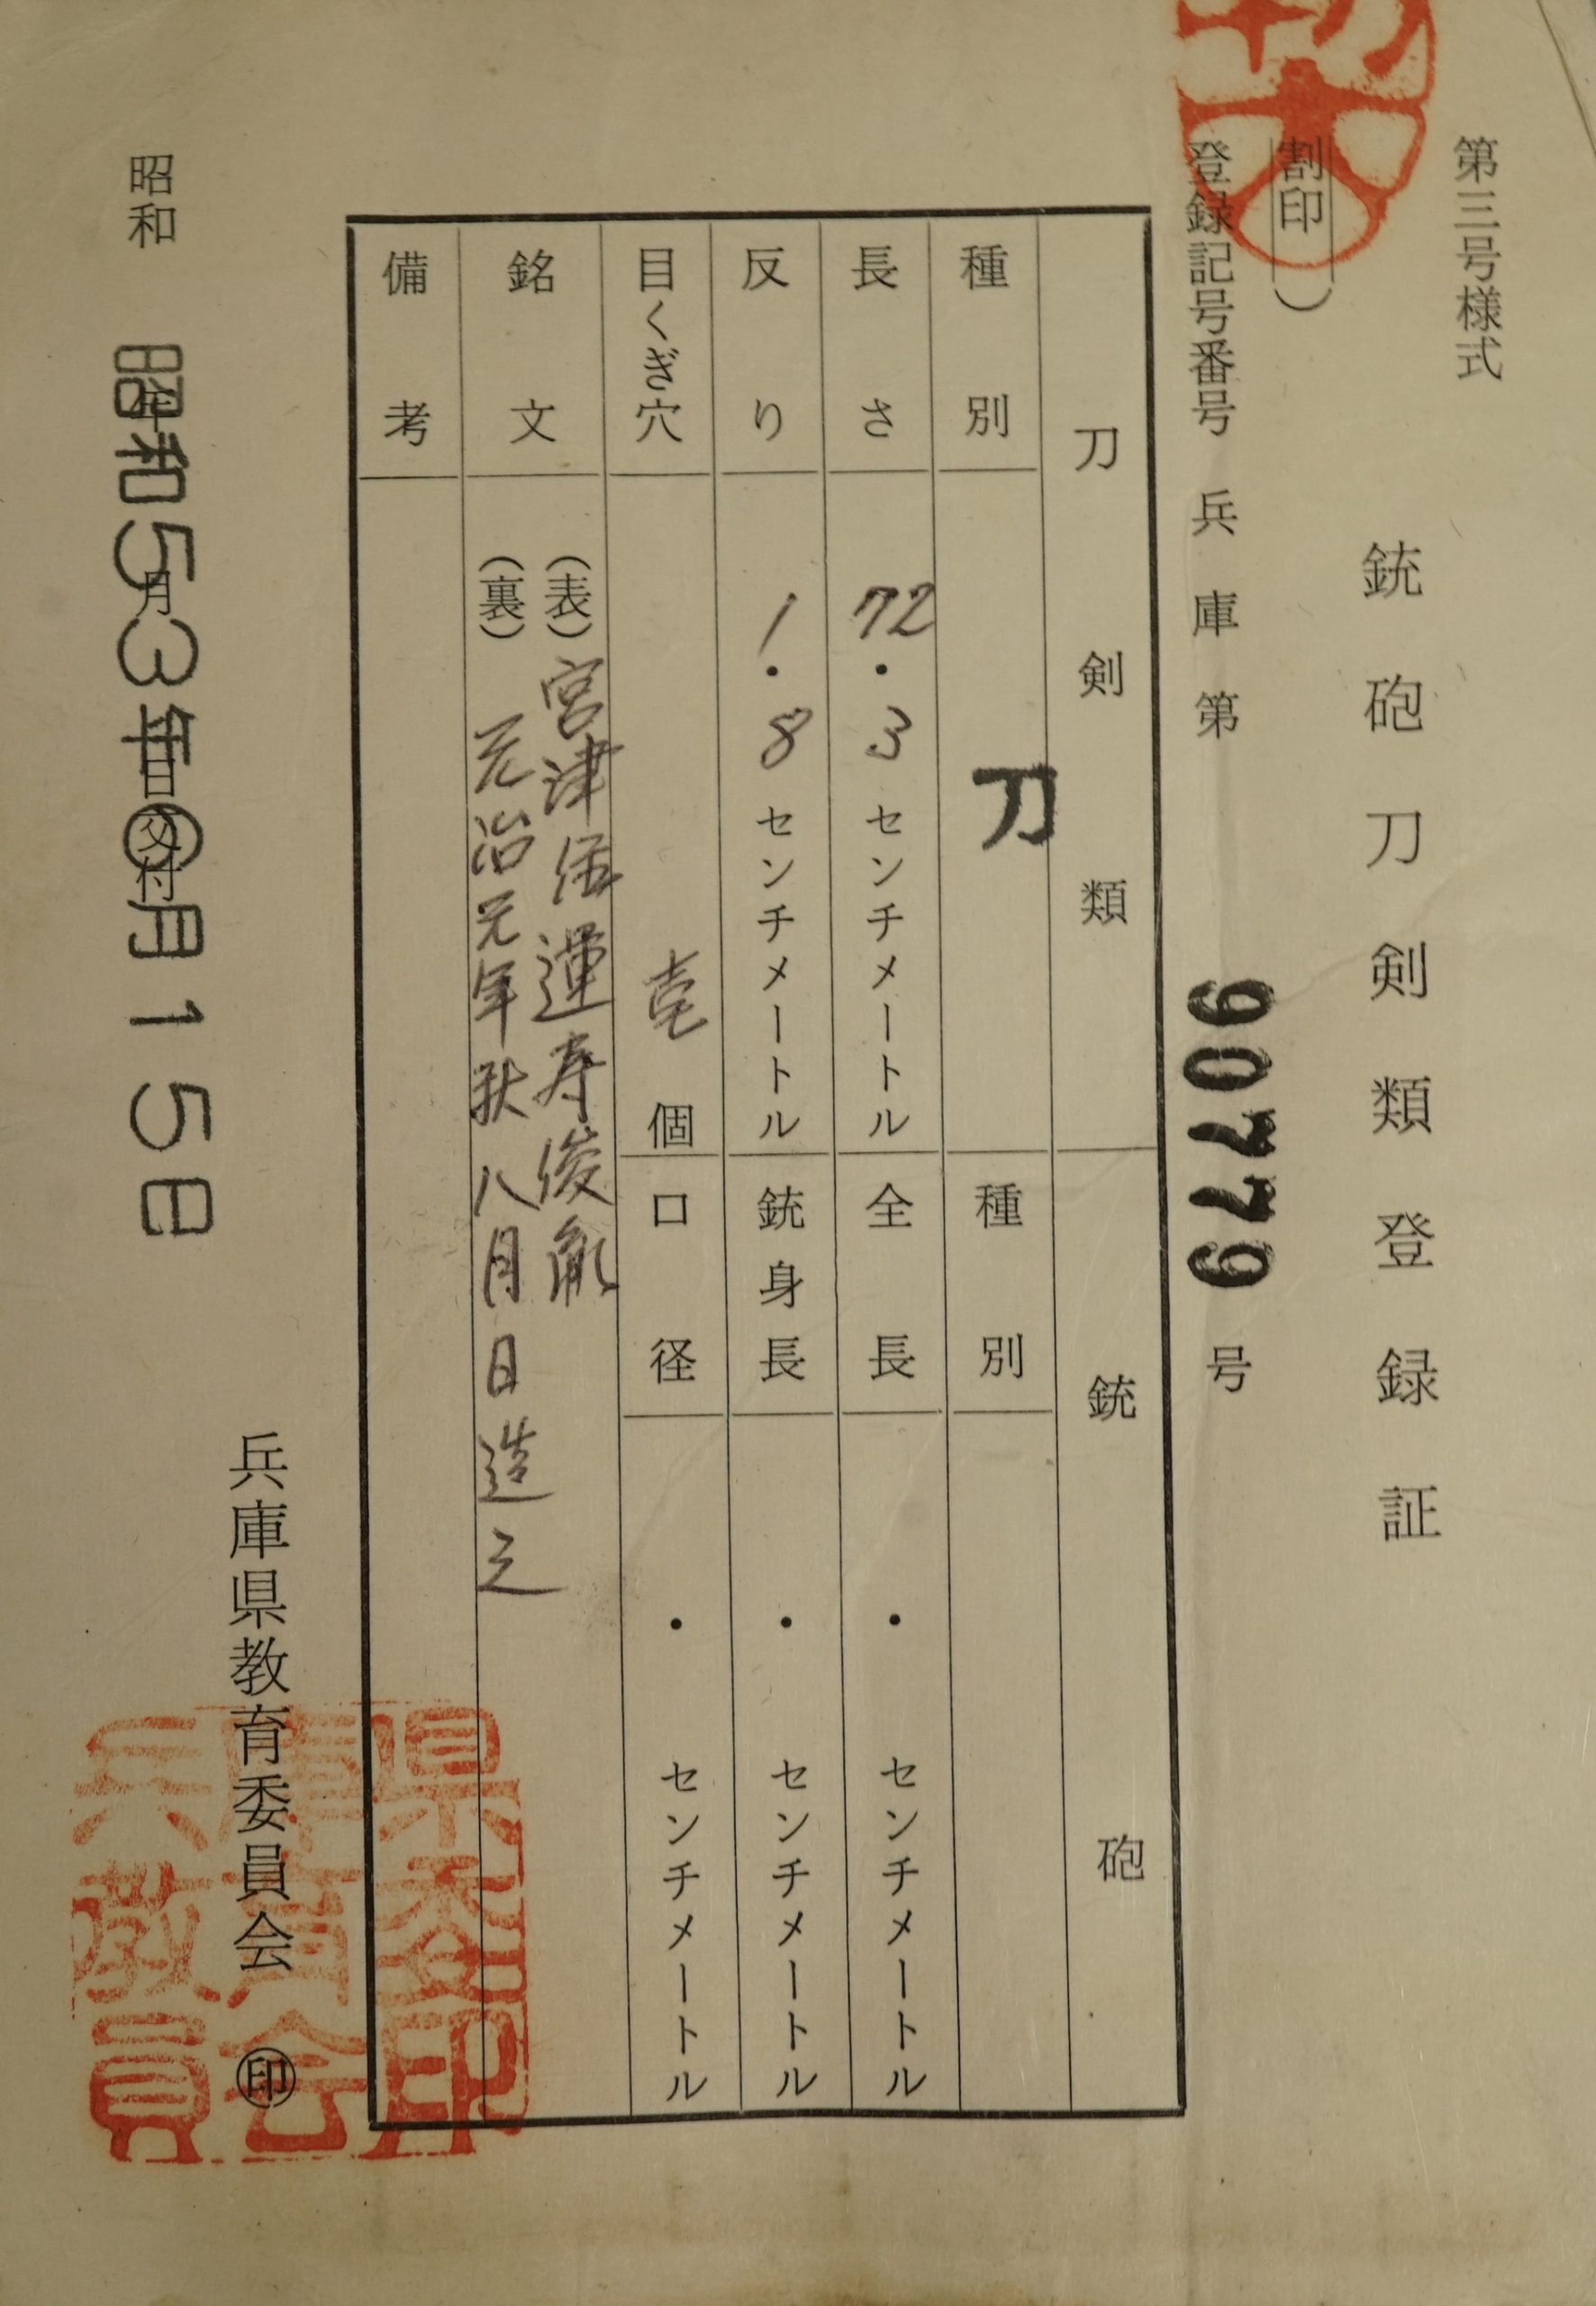 第三号様式
銃砲刀剣類登録証
割印）
登録記号番号 兵庫第 90779 号
刀剣類 銃砲
種別 刀 種別
長さ 72.3 センチメートル 全長 ・ センチメートル
反り 1.8 センチメートル 銃身長 ・ センチメートル
目くぎ穴 壱個 口径 ・ センチメートル
銘文 （表）宮津住運寿俊胤
（裏）元治元年秋八月日造之
備考
兵庫県教育委員会 ㊞
昭和 年 月 日交付
昭和53年6月15日
兵庫県教育委員会印